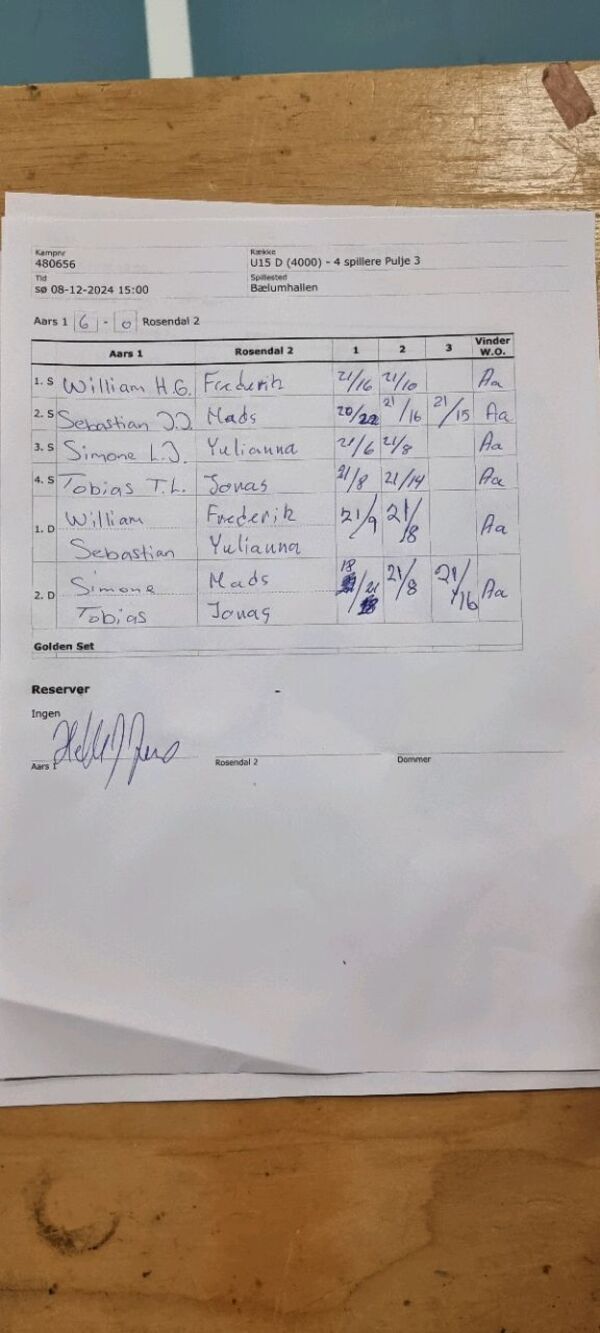 Kampnr Række
480656 U15 D (4000) - 4 spillere Pulje 3
Tid Spillested
sø 08-12-2024 15:00 Bælumhallen
Aars 1 6 - 0 Rosendal 2
Aars 1 Rosendal 2 1 2 3 Vinder W.O.
1. S William H.G. Frederik 21/16 21/10 Aa
2. S Sebastian J.J. Mads 20/22 21/16 21/15 Aa
3. S Simone L.J. Yulianna 21/6 21/8 Aa
4. S Tobias T.L. Jonas 21/8 21/14 Aa
1. D William Frederik 21/9 21/8 Aa
Sebastian Yulianna
2. D Simone Mads 18/21 21/8 21/16 Aa
Tobias Jonas
Golden Set
Reserver -
Ingen
Aars 1 Rosendal 2 Dommer